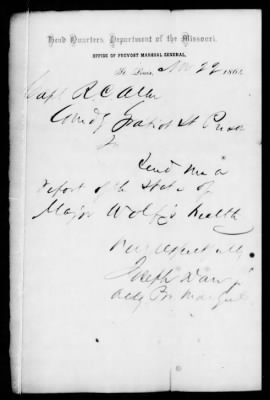 Head Quarters, Department of the Missouri,
OFFICE OF PROVOST MARSHAL GENERAL,
St. Louis, Nov 22 1864
Capt R. C. Allen
Comdg Gratiot St Prison
Send me a
report of the State of
Major Wolf's health
Very respectfully
Joseph Darr Jr
Actg Pro Mar Genl